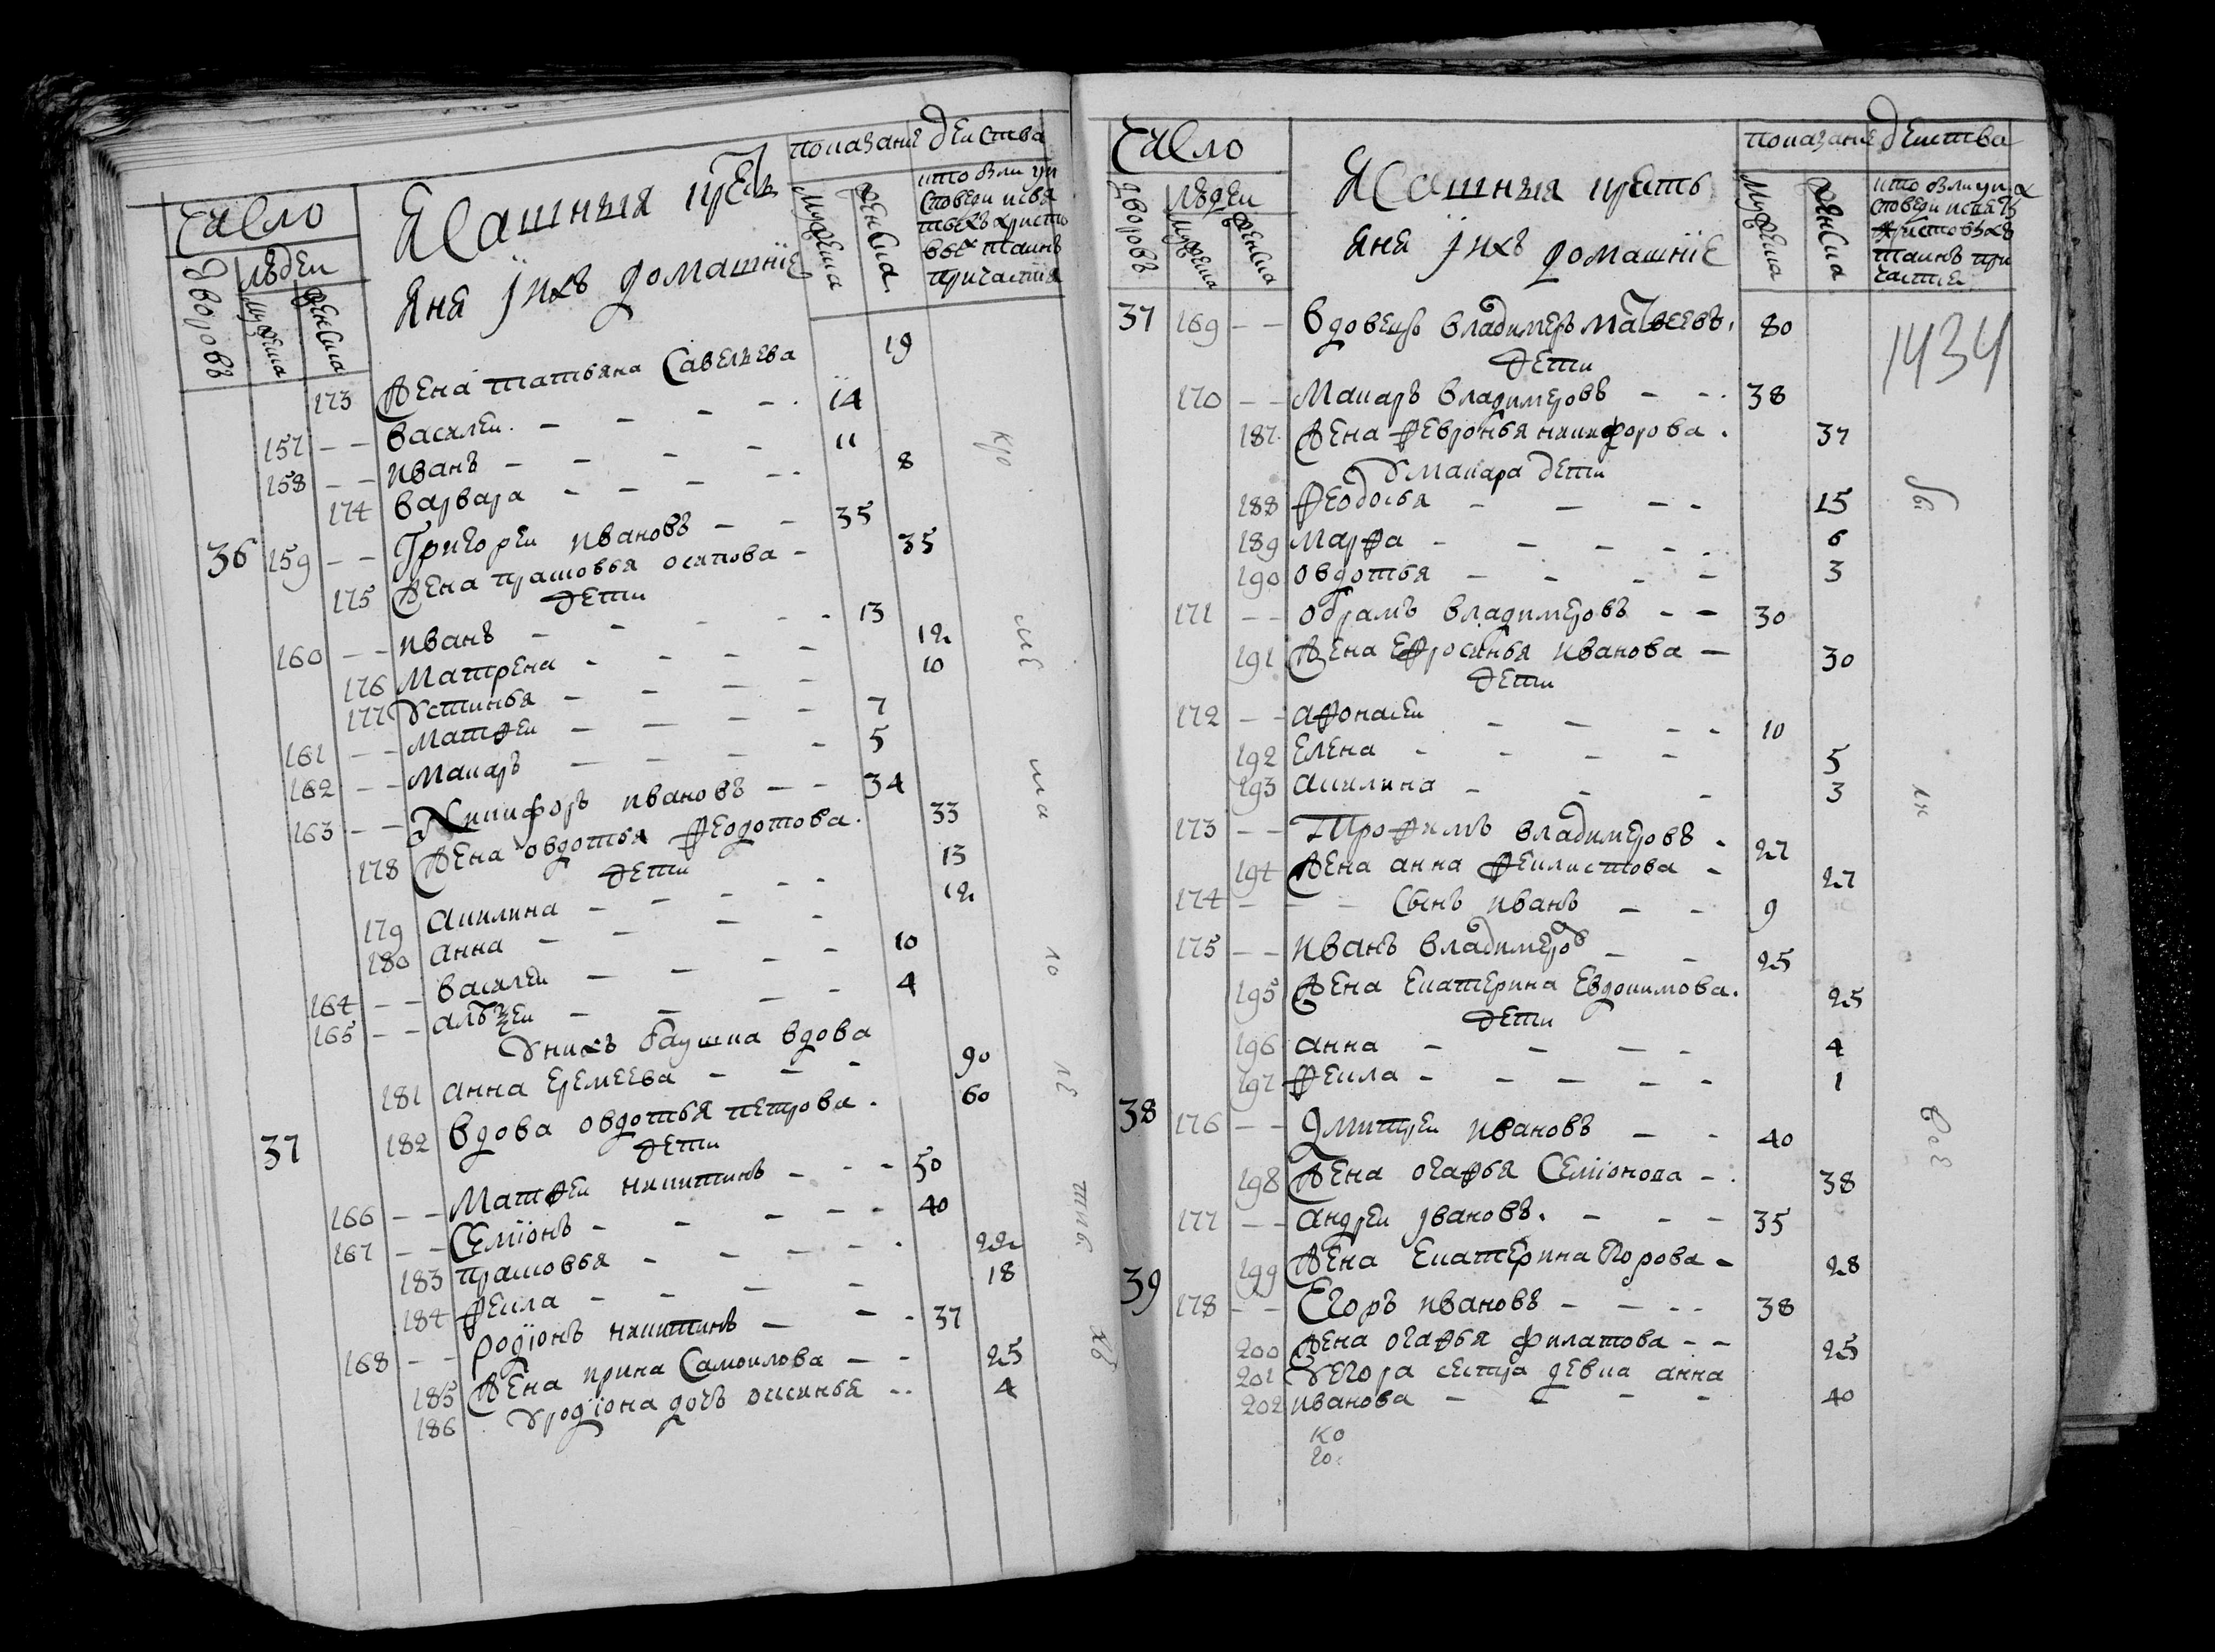 Число
Ясашныя крестъ
яня и ихъ домашнїе
показание действа
дворовъ
людеи
мужеска
женска
мужеска
женска
кто были у и
споведи и свя
тыхъ христо
выхъ таинъ
причастия
173 жена татьяна савельева 19
157 - - василеи - - - - 14
158 - - иванъ - - - - 11
174 варвара - - - - 8
36 159 - - Григореи ивановъ - - 35
175 жена прасковья осипова - 35
дети
160 - - иванъ - - - - - 13
176 матрена - - - - 12
177 устинья - - - - 10
161 - - матфеи - - - - 7
162 - - макаръ - - - - 5
163 - - Никифоръ ивановъ - - 34
178 жена овдотья феодотова 33
дети
179 акилина - - - - - 13
180 анна - - - - 12
164 - - василеи - - - - 10
165 - - алѣѯеи - - - - 4
у нихъ бабушка вдова
181 анна еремеева - - - 90
37 182 вдова овдотья петрова 60
дети
166 - - Матфеи никитинъ - - - 50
167 - - Семїонъ - - - - - 40
183 прасковья - - - - - 22
184 фекла - - - - 18
168 - - родїонъ никитинъ - - - 37
185 жена ирина самоилова - - 25
186 у родїона дочь оксинья - - 4
кро
ме
ша
ю
ле
тив
хъ
Число
Ясашныя кресть
яня и ихъ домашнїе
показание действа
дворовъ
людеи
мужеска
женска
мужеска
женска
кто были у и
споведи и святъ
христовыхъ
таинъ при
частия
1434
37 169 - - вдовецъ владимеръ матвеевъ 80
дети
170 - - Макаръ владимеровъ - - 38
187 жена февронья никифорова 37
у макара дети
188 феодосья - - - - 15
189 марфа - - - - - 6
190 овдотья - - - - 3
171 - - обрамъ владимеровъ - - 30
191 жена ефросинья иванова - 30
дети
172 - - афонасеи - - - - 10
192 елена - - - - - 5
193 акилина - - - 3
173 - - Трофимъ владимеровъ - 27
194 жена анна феклистова - 27
174 - - - сынъ иванъ - - 9
175 - - иванъ владимеровъ - - 25
195 жена екатерина евдокимова 25
дети
196 анна - - - - 4
197 фекла - - - - - 1
38 176 - - дмитреи ивановъ - - 40
198 жена огафья семїонова - 38
177 - - андреи ивановъ - - - 35
199 жена екатерина егорова - 28
39 178 - - Егоръ ивановъ - - - - 38
200 жена огафья филатова - - 25
201 у егора сестра девка анна
202 иванова - - - - 40
бы
ли
о
все